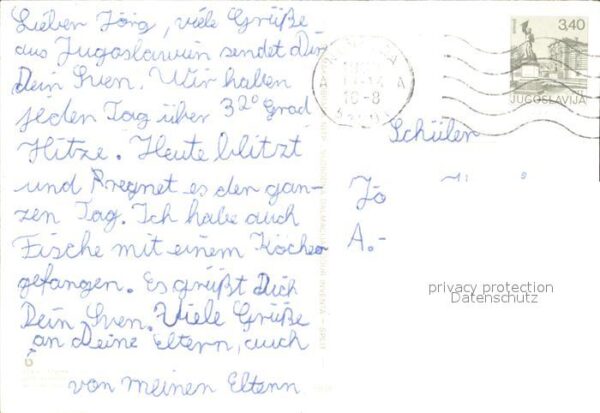 Lieber Jörg, viele Grüße
aus Jugoslawien sendet Dir
Dein Sven. Wir haben
jeden Tag über 32° Grad
Hitze. Heute blitzt
und Rregnet es den gan-
zen Tag. Ich habe auch
Fische mit einem Köcher
gefangen. Es grüßt Dich
Dein Sven. Viele Grüße
an Deine Eltern, auch
von meinen Eltern
3,40
JUGOSLAVIJA
16-8
Schüler
Jö
A.-
privacy protection
Datenschutz